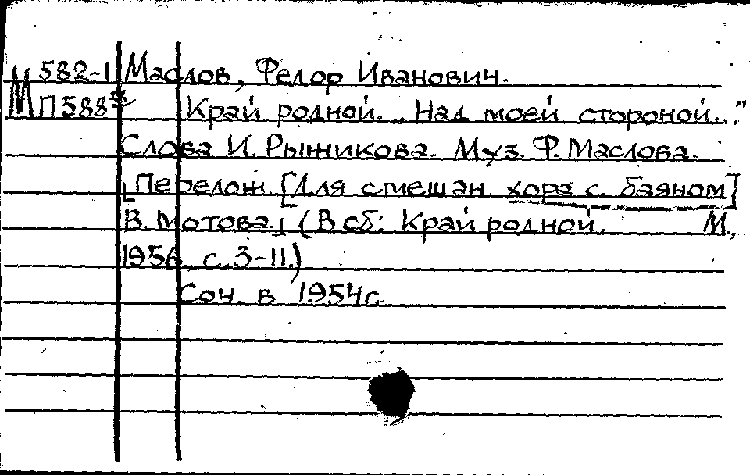 М 582-1 Маслов, Федор Иванович.
П588 Край родной. „Над моей стороной..."
Слова И. Рыжикова. Муз. Ф. Маслова.
[Перелож. [Для смешан. хора с баяном]
В. Мотова] (В сб: Край родной. М.,
1956 с. 3-11.)
Соч. в 1954г.